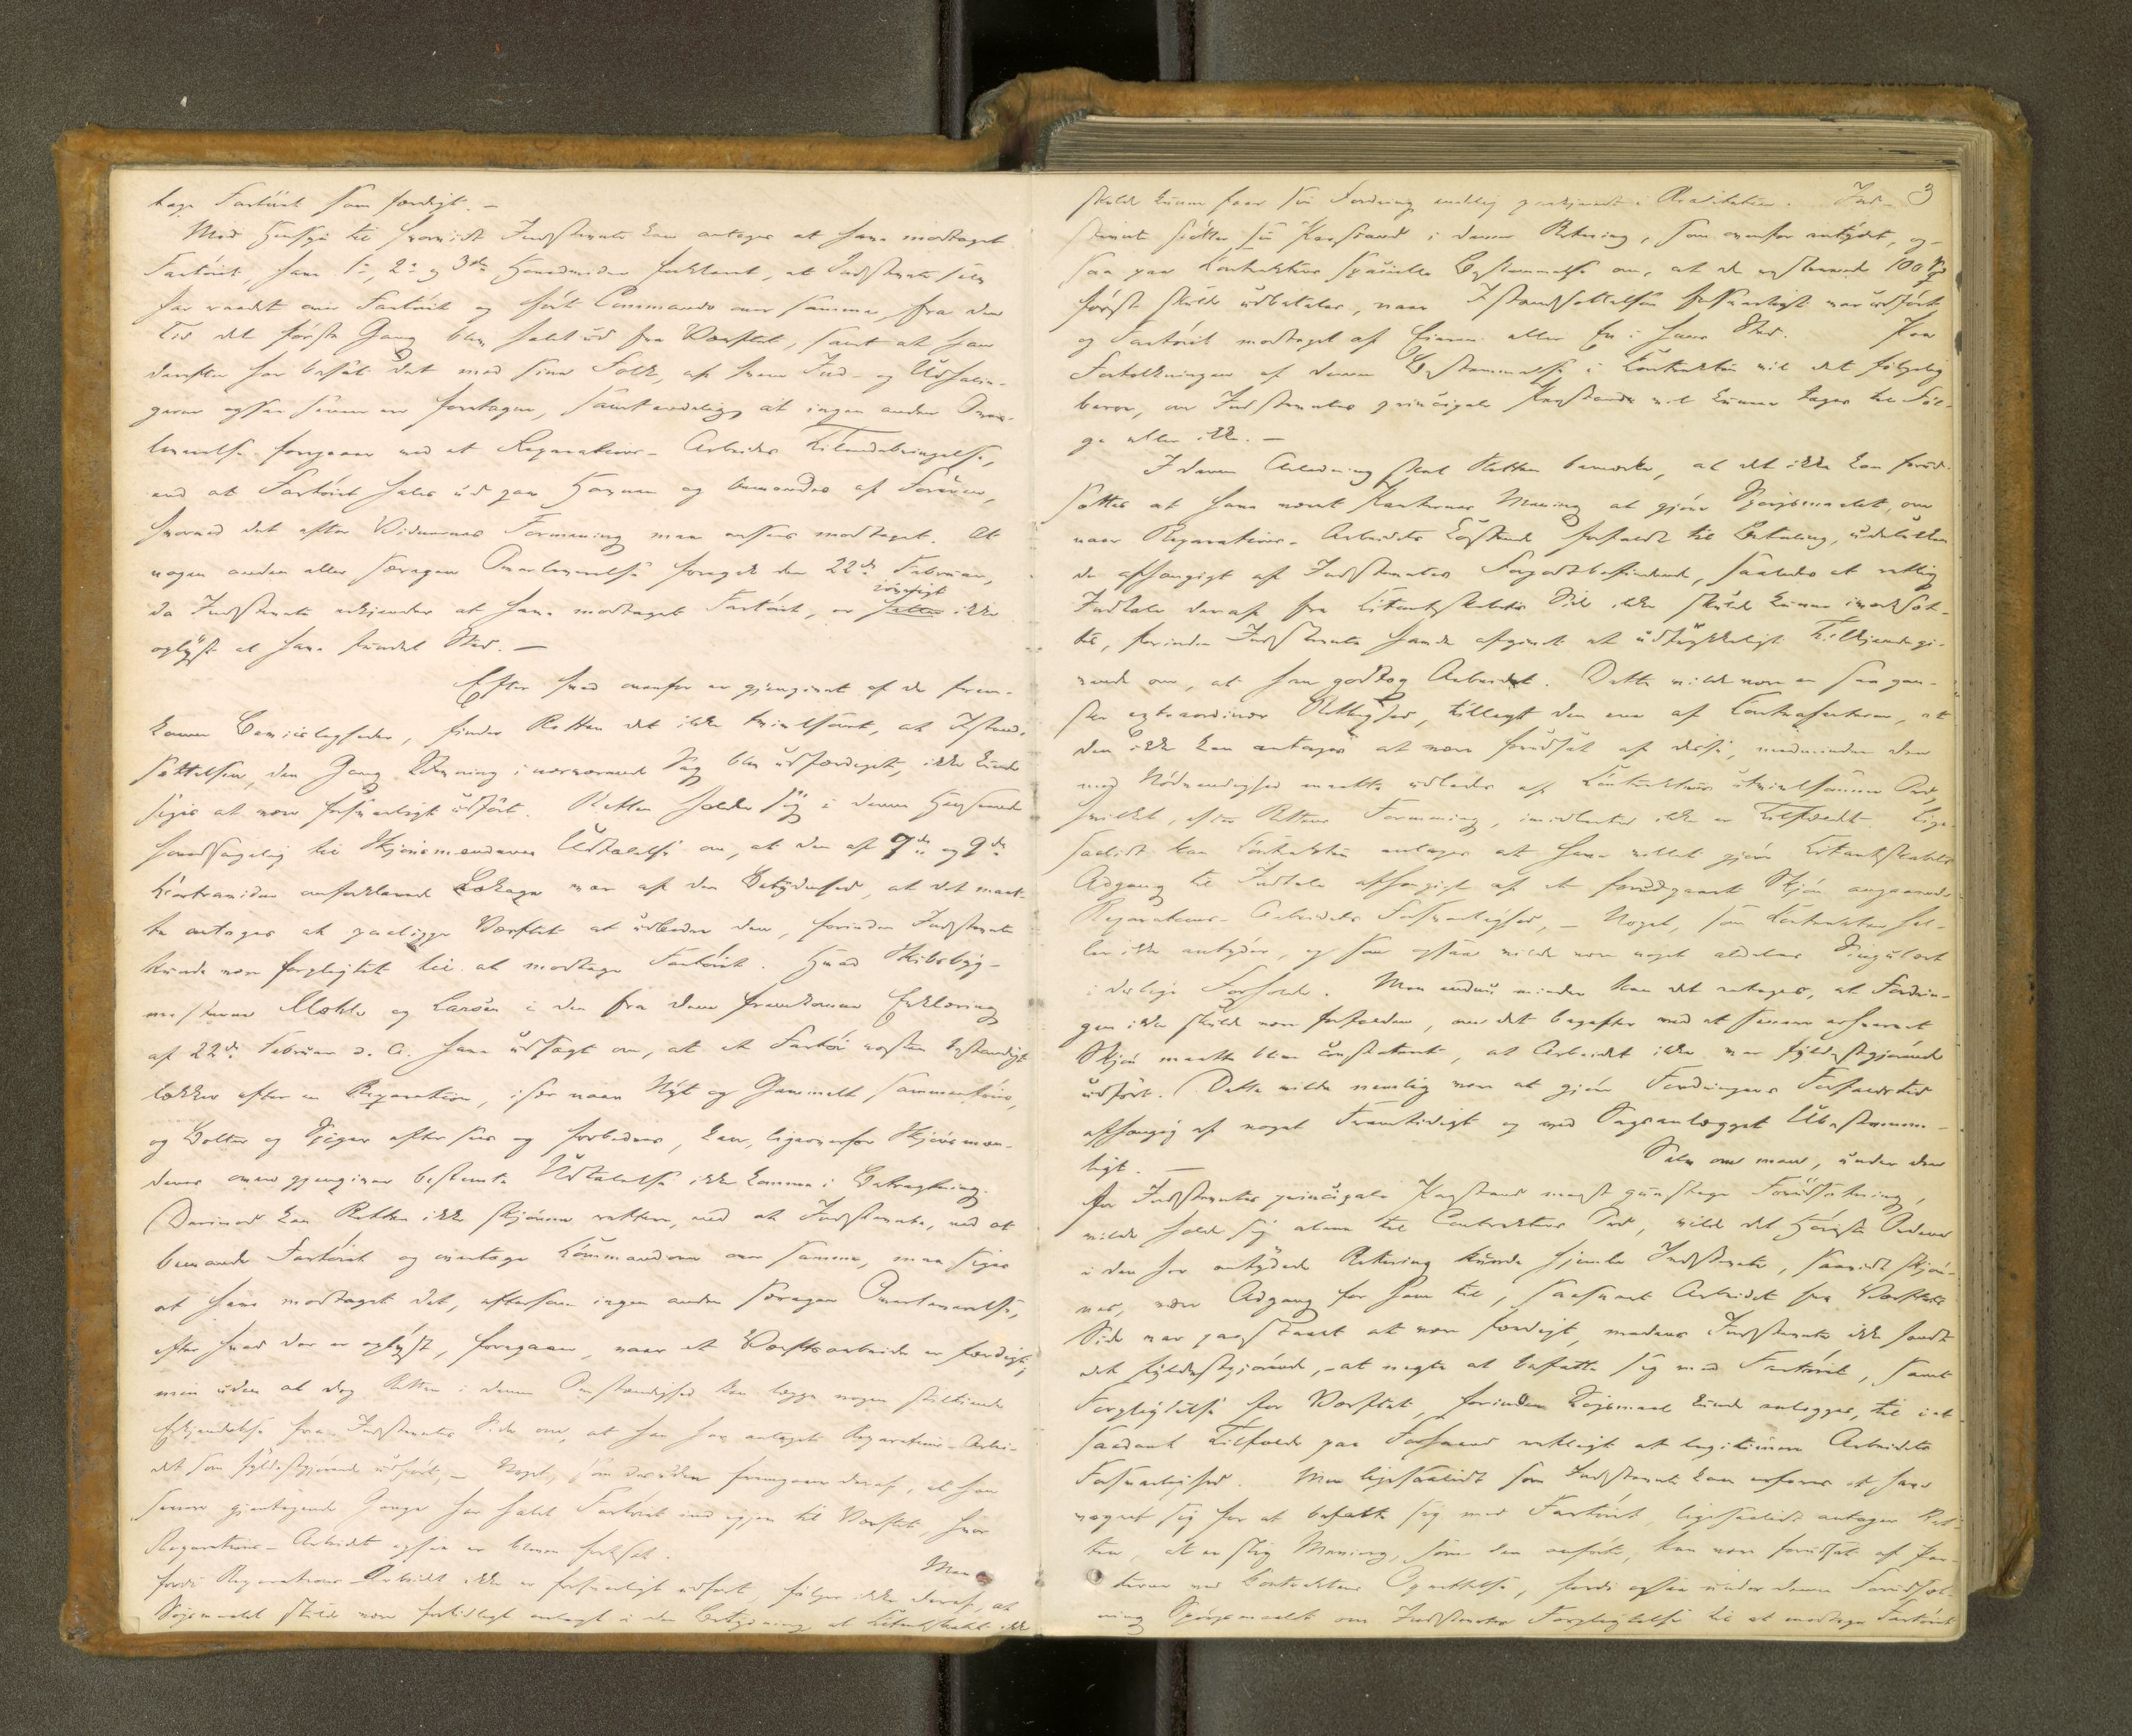 tage Fartöiet som færdigt. —
Med Hensyn til hvorvidt Indstevnte kan antages at have modtaget
Fartöiet, have 1ste, 2de og 3die Hovedvidne forklaret, at Indstevnte selv
har raadet over Fartöiet og fört Commando over samme, fra den
Tid det förste Gang blev halet ud fra Værftet, samt at han
derefter har besat det med sine Folk, af hvem Ind- og Udhalin-
gerne ogsaa senere ere foretagne, samt endelig at ingen anden Over-
leverelse foregaaer ved et Reparations-Arbeides Tilendebringelse,
end at Fartöiet hales ud paa Havnen og bemandes af Föreren,
hvorved det efter Vidnernes Formening maa ansees modtaget. At
nogen anden eller særegen Overleverelse foregik den 22de Februar,
da Indstevnte erkjender at have modtaget Fartöiet, er heller ikke
oplyst at have fundet Sted. —
Efter hvad ovenfor er gjengivet af de frem-
komne Beviisligheder, finder Retten det ikke tvivlsomt, at Istand-
sættelsen, den Gang Stevning i nærværende Sag blev udfærdiget, ikke kunde
siges at være forsvarligt udfört. Retten holder sig i denne Henseende
hovedsagelig til Skjönsmændenes Udtalelse om, at den af 7de og 9de
Contravidne anforklarede Lækage var af den Betydenhed, at det maat-
te antages at paaligge Værftet at udbedre den, forinden Indstevnte
kunde være forpligtet til at modtage Fartöiet. Hvad Skibsbyg-
mesterne og Larsen i den fra dem fremkomne Erklæring
af 22de Februar d. A. have udsagt om, at et Fartöi næsten bestandigt
lækker efter en Reparation, især naar Nyt og Gammelt sammenföies,
og Bolter og Spiger efter sees og forbedres, kan, ligeoverfor Skjönsmæn-
denes ovengjengivne bestemte Udtalelse ikke komme i Betragtning.
Derimod kan Retten ikke skjönne rettere, end at Indstevnte, ved at
bemande Fartöiet og overtage Commandoen over samme, maa siges
at have modtaget det, eftersom ingen anden særegen Overleverelse,
efter hvad der er oplyst, foregaaer, naar et Værftsarbeide er færdigt;
men uden at dog Retten i denne Omstændighed kan lægge nogen stiltiende
Erkjendelse fra Indstevntes Side om, at han har antaget Reparations-Arbei-
det som fyldestgjörende udfört, — Noget, som desuden fremgaaer deraf, at han
senere gjentagende Gange har halet Fartöiet ind igjen til Værftet, hvor
Reparations-Arbeidet ogsaa er blevet fortsat.
Men
fordi Reparations Arbeidet ikke er forsvarligt udfört, fölger ikke deraf, at
Sögsmaalet skulde være fortidligt anlagt i den Betydning, at Citantskabet ikke
3
skulde kunne faae sin Fordring endelig paakjendt i Realiteten. Ind-
stevnte stötter sin Paastand i denne Retning, som ovenfor antydet, og-
saa paa Contraktens specielle Bestemmelse om, at de resterende 100 Spd
först skulde udbetales, naar Istandsættelsen forsvarligt var udfört
og Fartöiet modtaget af Eieren eller En i hans Sted. Paa
Fortolkningen af denne Bestemmelse i Contrakten vil det fölgelig
beroe, om Indstevntes principale Paastand vil kunne tages til Föl-
ge eller ikke. —
I denne Anledning skal Retten bemærke, at det ikke kan forud-
sættes at have været Parternes Mening at gjöre Spörgsmaalet, om
naar Reparations-Arbeidets Kostende forfaldt til Betaling, udelukken-
de afhængigt af Indstevntes Forgodtbefindende, saaledes at retslig
Indtale deraf fra Citantskabets Side ikke skulde kunne iværksæt-
tes, forinden Indstevnte havde afgivet et udtrykkeligt Tilkjendegi-
vende om, at han godtog Arbeidet. Dette vilde være en saa gan-
ske extraordinær Rettighed, tillagt den ene af Contrahenterne, at
den ikke kan antages at være forudsat af disse, medmindre den
med Nödvendighed maatte udledes af Contraktens utvivlsomme Ord,
hvilket, efter Rettens Formening, imidlertid ikke er Tilfældet. Lige-
saalidt kan Contrakten antages at have villet gjöre Citantskabets
Adgang til Indtale afhængigt af et forudgaaet Skjön angaaende
Reparations-Arbeidets Forsvarlighed, — Noget, som Contrakten hel-
ler ikke antyder, og som ogsaa vilde være noget aldeles Singulært
i deslige Forholde. Men endnu mindre kan det antages, at Fordrin-
gen ikke skulde være forfalden, om det bagefter ved et senere erhvervet
Skjön maatte blive constateret, at Arbeidet ikke var fyldestgjörende
udfört. Dette vilde nemlig være at gjöre Fordringens Forfaldstid
afhængig af noget Fremtidigt og ved Sagsanlægget Ubestemme-
ligt. — Selv om man, under den
for Indstevntes principale Paastand meest gunstige Forudsætning,
vilde holde sig alene til Contraktens Ord, vilde det Höieste Ordene
i den her antydede Retning kunde hjemle Indstevnte, saavidt skjön-
nes, være Adgang for ham til, saasnart Arbeidet fra Værftets
Side var paastaaet at være færdigt, medens Indstevnte ikke fandt
det fyldestgjörende, at negte at befatte sig med Fartöiet, samt
Forpligtelse for Værftet, forinden Sögsmaal kunde anlægges, til i et
saadant Tilfælde paa Forhaand retsligt at legitimere Arbeidets
Forsvarlighed. Men ligesaalidt som Indstevnte kan ansees at have
vægret sig for at befatte sig med Fartöiet, ligesaalidt antager Ret-
ten, at en slig Mening, som den anförte, kan være forudsat af Par-
terne ved Contraktens Oprettelse, fordi ogsaa under denne Forudsæt-
ning Spörgsmaalet om Indstevntes Forpligtelse til at modtage Fartöiet